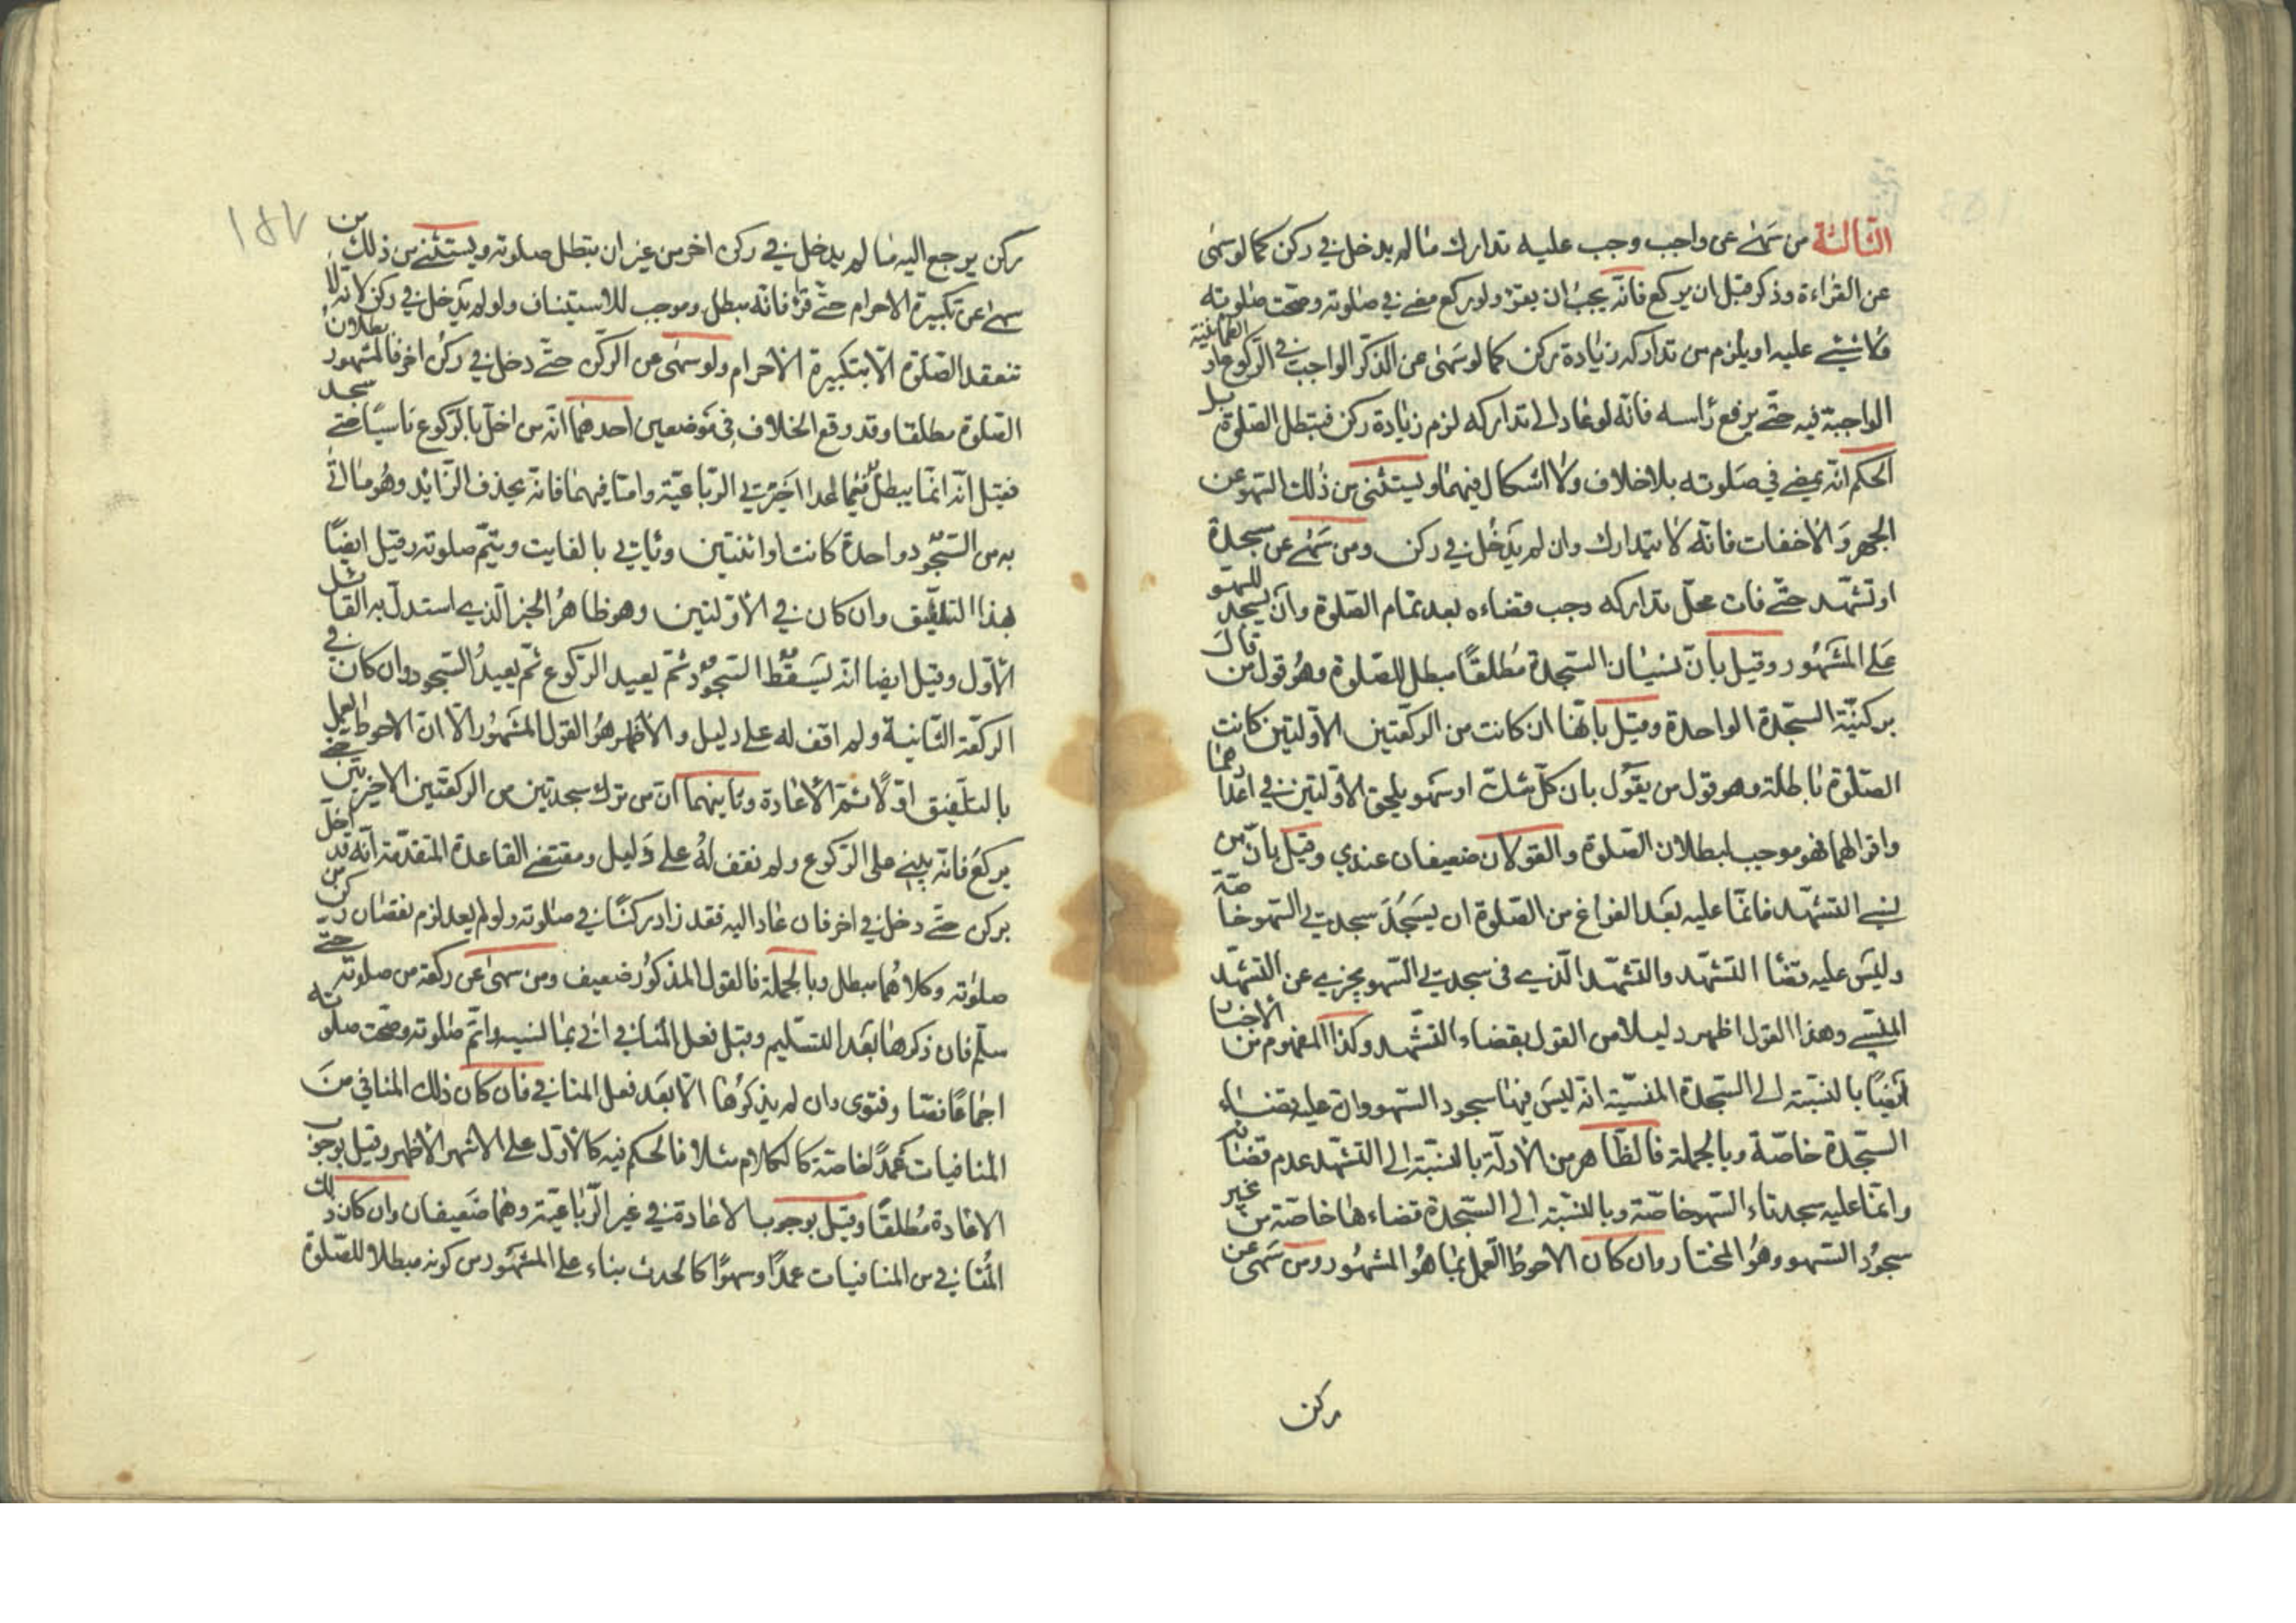 الثالثة من سهى عن واجب وجب عليه تدارك ما لم يدخل في ركن كما لو سهى
عن القراءة وذكر قبل ان يركع فانه يجب ان يقرء ولو ركع مضى في صلوته وصحت صلوته
ولا شيء عليه او يلزم من تداركه زيادة ركن كما لو سهى عن الذكر الواجب في الركوع او الطمانينة
الواجبة فيه حتى يرفع راسه فانه لو عاد الى تداركه لزم زيادة ركن فتبطل الصلوة بل
الحكم انه يمضى في صلوته بلا خلاف ولا اشكال فيهما ويستثنى من ذلك السهو عن
الجهر والاخفات فانه لا يتدارك وان لم يدخل في ركن ومن سهى عن سجدة
او تشهد حتى فات محل تداركه وجب قضاءه بعد تمام الصلوة وان يسجد للسهو
على المشهور وقيل بان نسيان السجدة مطلقا مبطل للصلوة وهو قول من قال
بركنية السجدة الواحدة وقيل بانها ان كانت من الركعتين الاولتين كانت
الصلوة باطلة وهو قول من يقول بان كل شك او سهو يلحق الاولتين في اعدادهما
وافعالهما فهو موجب لبطلان الصلوة والقولان ضعيفان عندي وقيل بان من
نسي التشهد فانما عليه بعد الفراغ من الصلوة ان يسجد سجدتي السهو خاصة
وليس عليه قضاء التشهد والتشهد الذي في سجدتي السهو يجزي عن التشهد
المنسي وهذا القول اظهر دليلا من القول بقضاء التشهد وكذا المفهوم من الاخبار
ايضا بالنسبة الى السجدة المنسية انه ليس فيها سجود السهو وان عليه قضاء
السجدة خاصة وبالجملة فالظاهر من الادلة بالنسبة الى التشهد عدم قضائه
وانما عليه سجدتاء السهو خاصة وبالنسبة الى السجدة قضاءها خاصة من غير
سجود السهو وهو المختار وان كان الاحوط العمل بما هو المشهور ومن سهى عن
ركن
ركن يرجع اليه ما لم يدخل في ركن اخر من غير ان يبطل صلوته ويستثنى من ذلك من
سهى عن تكبيرة الاحرام حتى قرا فانه مبطل وموجب للاستيناف ولو لم يدخل في ركن لانه لا
تنعقد الصلوة الا بتكبيرة الاحرام ولو سهى عن الركن حتى دخل في ركن اخر فالمشهور بطلان
الصلوة مطلقا وقد وقع الخلاف في موضعين احدهما انه من اخل بالركوع ناسيا حتى سجد
فقيل انه انما يبطل فيما عدا اخيرتي الرباعية واما فيهما فانه يحذف الزايد وهو ما اتى
به من السجود واحدة كانت او اثنتين وياتي بالفايت ويتم صلوته وقيل ايضا
بهذا التلفيق وان كان في الاولتين وهو ظاهر الخبر الذي استدل به القائل
الاول وقيل ايضا انه يسقط السجود ثم يعيد الركوع ثم يعيد السجود وان كان في
الركعة الثانية ولم اقف له على دليل والاظهر هو القول المشهور الا ان الاحوط العمل
بالتلفيق اولا ثم الاعادة وثانيهما ان من ترك سجدتين من الركعتين الاخيرتين حتى
يركع فانه يبني على الركوع ولم نقف له على دليل ومقتضى القاعدة المتقدمة انه قد اخل
بركن حتى دخل في اخر فان عاد اليه فقد زاد ركنا في صلوته ولو لم يعد لزم نقصان ركن من
صلوته وكلاهما مبطل وبالجملة فالقول المذكور ضعيف ومن سهى عن ركعة من صلوته حتى
سلم فان ذكرها بعد التسليم وقبل فعل المنافي اتى بما نسيه واتم صلوته وصحت صلوته
اجماعا نصا وفتوى وان لم يذكرها الا بعد فعل المنافي فان كان ذلك المنافي من
المنافيات عمدا خاصة كالكلام مثلا فالحكم فيه كالاول على الاشهر الاظهر وقيل بوجوب
الاعادة مطلقا وقيل بوجوب الاعادة في غير الرباعية وهما ضعيفان وان كان ذلك
المنافي من المنافيات عمدا وسهوا كالحدث بناء على المشهور من كونه مبطلا للصلوة